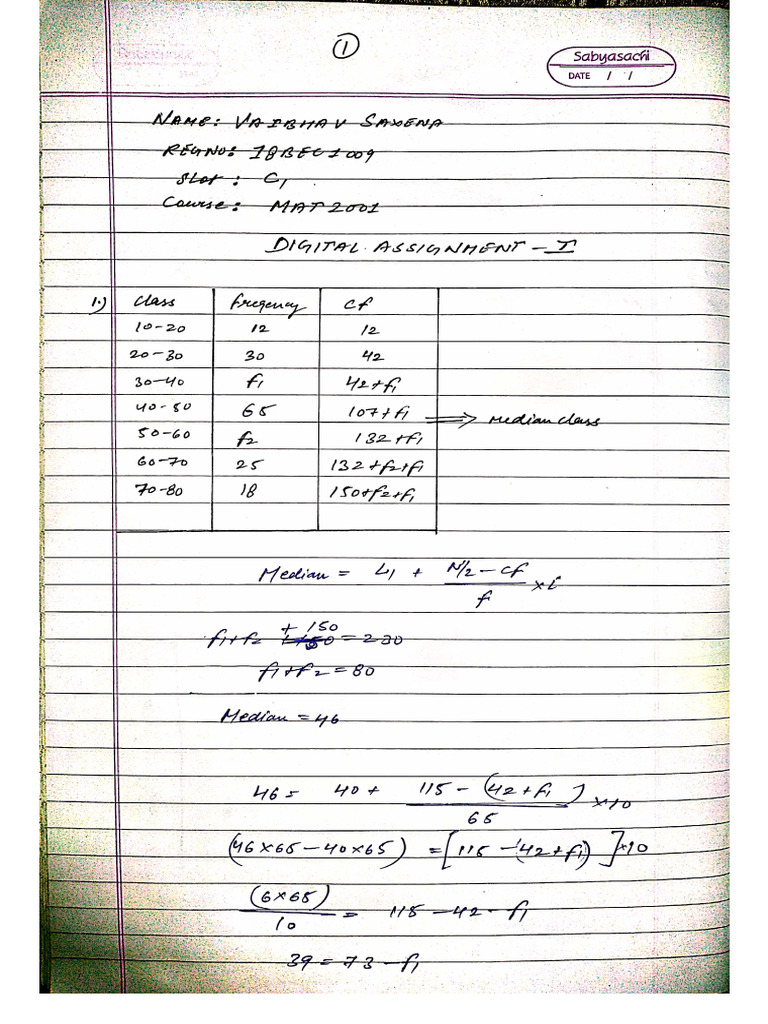 1
Sabyasachi
DATE / /
NAME: VAIBHAV SAXENA
REGNO: 18BEC1009
Slot: C1
Course: MAT2001
DIGITAL ASSIGNMENT - I
1.) Class Freqency Cf
10-20 12 12
20-30 30 42
30-40 f1 42+f1
40-50 65 107+f1 ⟹ Median class
50-60 f2 132+f1
60-70 25 132+f2+f1
70-80 18 150+f2+f1
Median = L1 + (N/2 - Cf)/f × i
f1+f2 + 150 = 230
f1+f2 = 80
Median = 46
46 = 40 + (115 - (42+f1))/65 × 10
(46×65 - 40×65) = [115 - (42+f1)] × 10
(6×65)/10 = 115 - 42 - f1
39 = 73 - f1